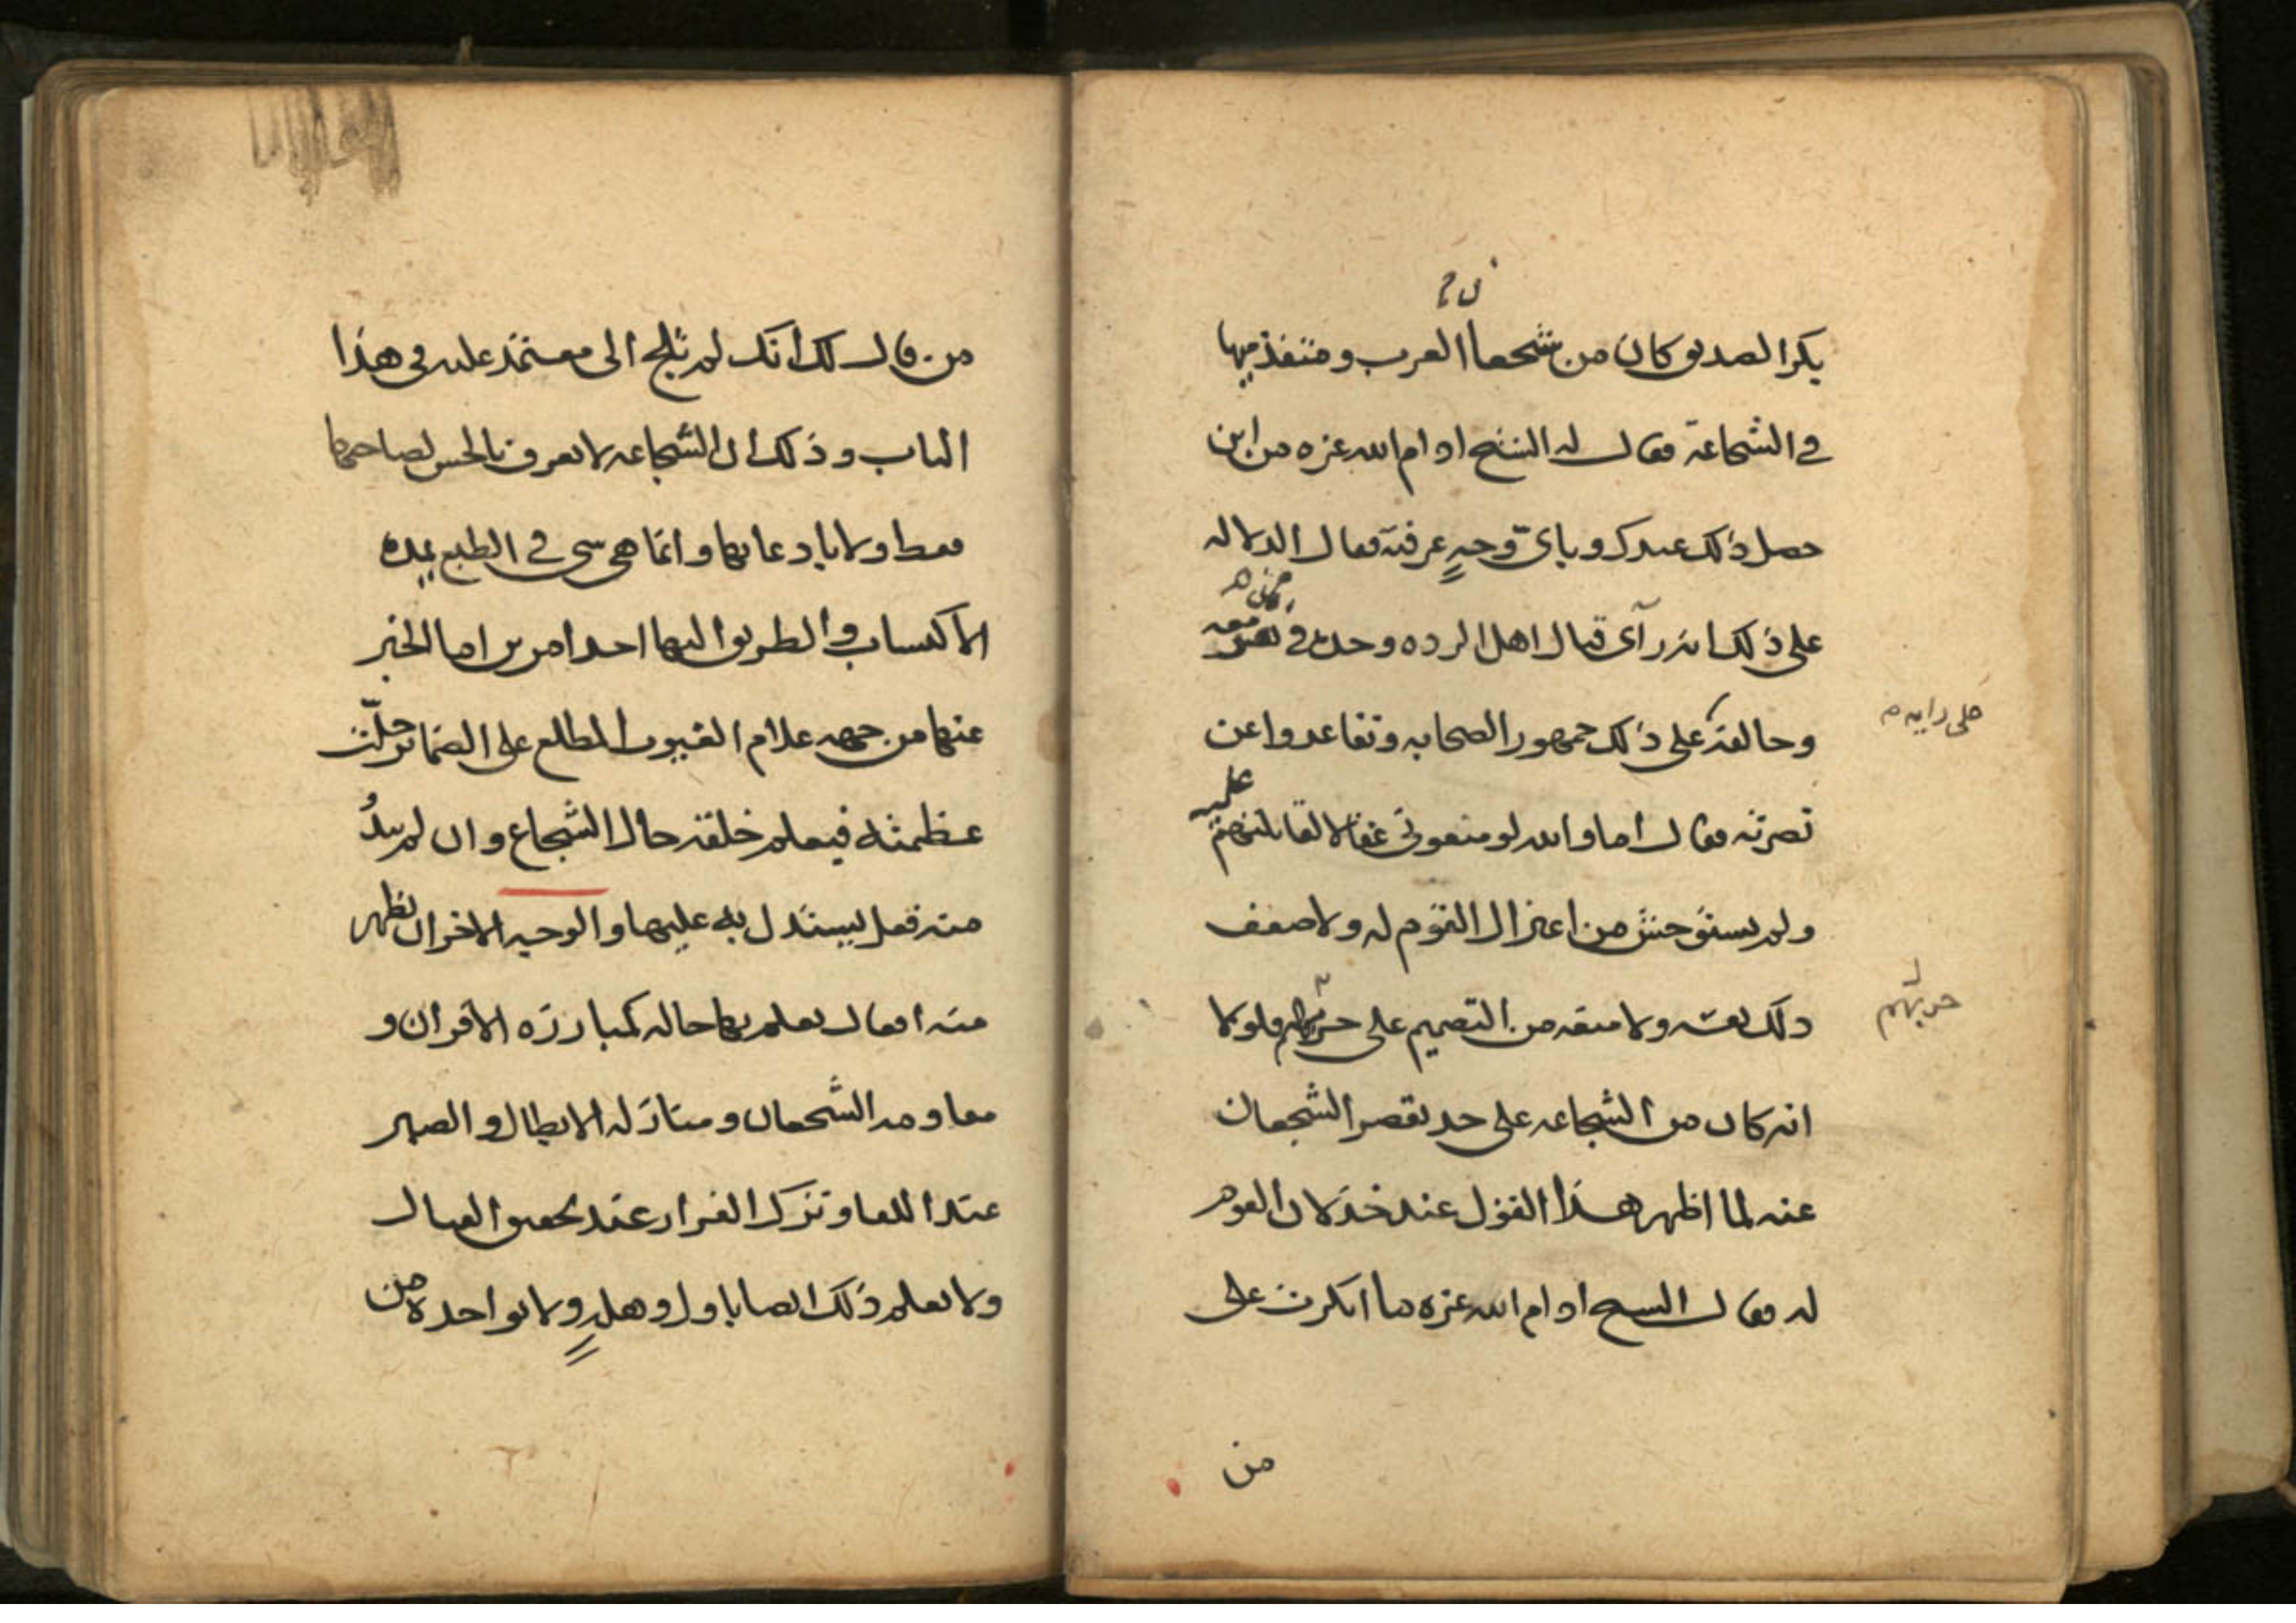 بكر الصديق كان من شجعا العرب ومتقدميها
ن م
في الشجاعة فقال له الشيخ ادام الله عزه من اين
حصل ذلك عندك وباى وجهٍ عرفته فقال الدلاله
على ذلك انه رآى قتال اهل الرده وحده في نفر معه
وخالفه على ذلك جمهور الصحابه وتقاعدوا عن
على رايه م
نصرته فقال اما والله لو منعونى عقالا لقاتلتهم عليه
ولم يستوحش من اعتزال القوم له ولا ضعف
ذلك نفسه ولا منعه من التصميم على حربهم فلولا
حربهم
انه كان من الشجاعه على حد يقصر الشجعان
عنه لما اظهر هذا القول عند خذلان القوم
له فقال الشيخ ادام الله عزه ما انكرت على
من
من قال لك انك لم تلج الى معتمد عليه فى هذا
الباب وذلك ان الشجاعه لا تعرف بالحس لصاحبها
فقط ولا بادعائها وانما هى شى في الطبع يمده
الاكتساب والطريق اليها احد امرين اما الخبر
عنها من جهه علام الغيوب المطلع على الضمائر جلّت
عظمته فيعلم خلقه حال الشجاع وان لم يبدُ
منه فعل يستدل به عليها والوجه الاخر ان يظهر
منه افعال يعلم بها حاله كمبارزه الاقران و
مقاومه الشجعان ومنازله الابطال والصبر
عند اللقا وترك الفرار عند تحقق القتال
ولا يعلم ذلك ايضا باول وهلهٍ ولا بواحدة من